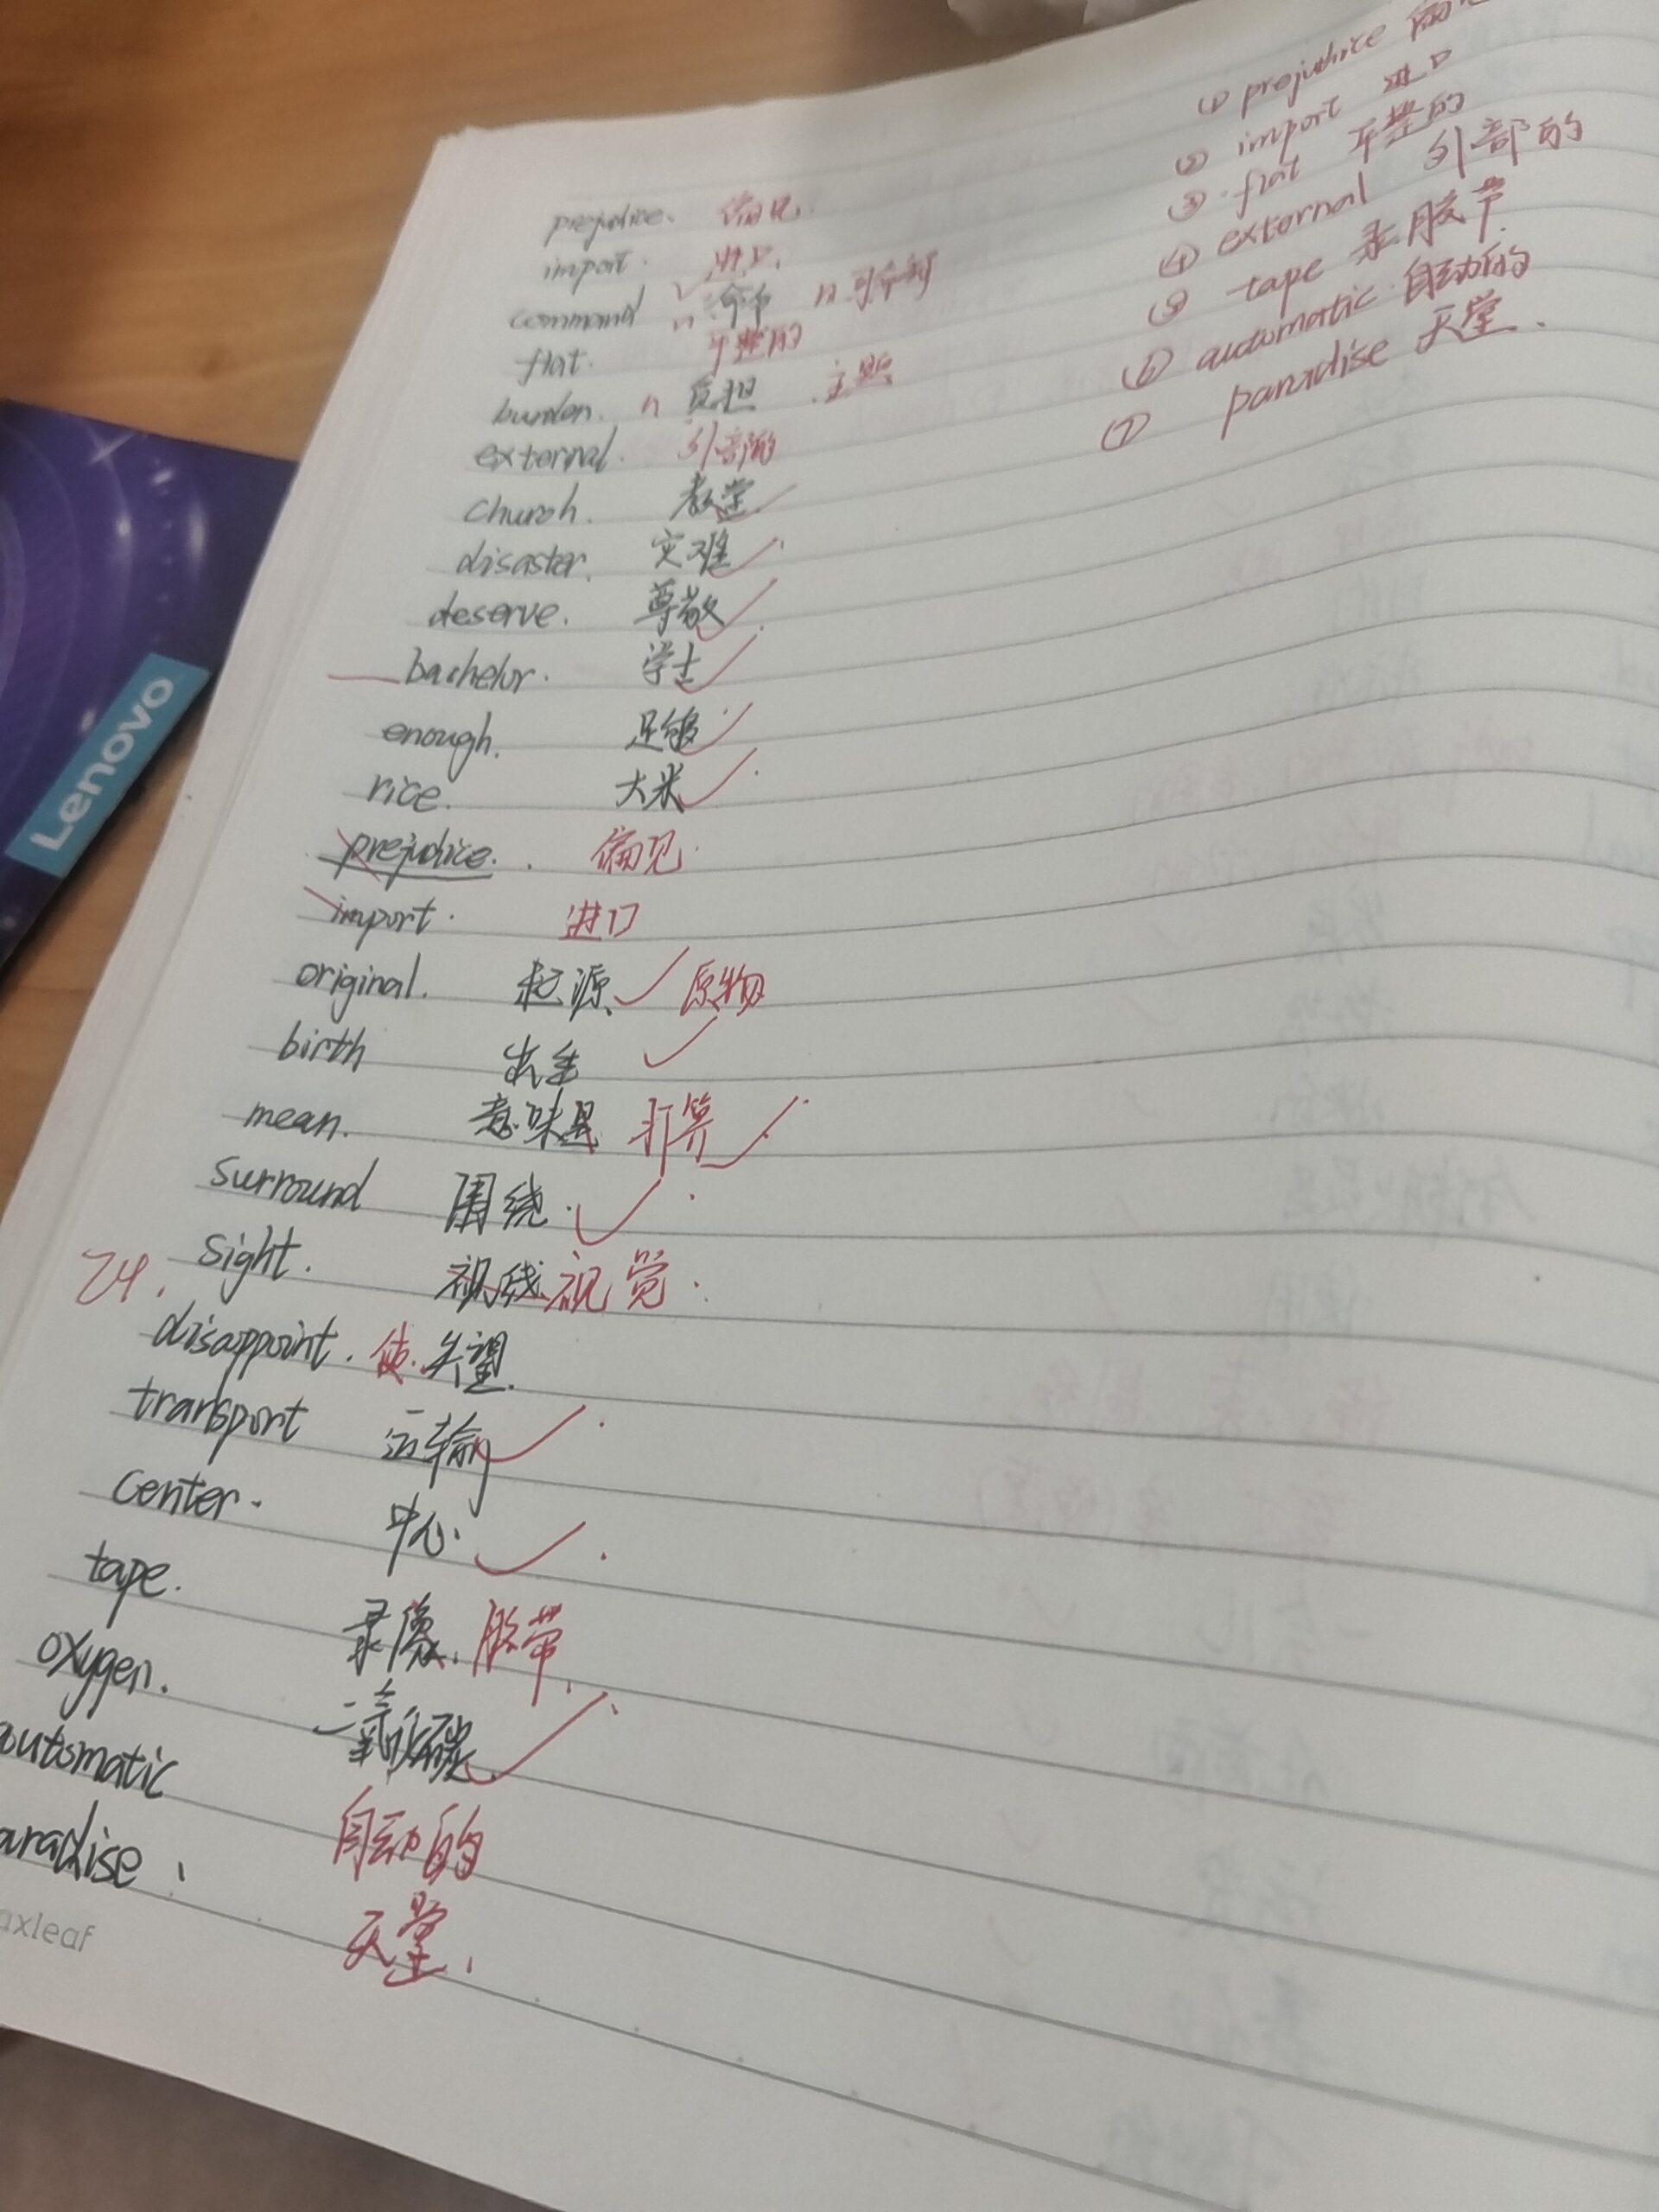 prejudice. 偏见.
import. 进口.
command n 命令 n
flat. 平整的
burden. n 负担
external. 外部的
church. 教堂.
disaster. 灾难
deserve. 尊敬
bachelor. 学士
enough. 足够
rice. 大米
prejudice. 偏见.
import. 进口
original. 起源 原物
birth 出生
mean. 意味是 打算
surround 围绕.
24. sight. 视线 视觉.
disappoint. 使. 失望.
transport 运输
center. 中心.
tape. 录像. 胶带.
oxygen. 二氧化碳.
automatic 自动的
aradise. 天堂.
axleaf
① prejudice 偏见
② import 进口
③ flat 平整的
④ external 外部的
⑤ tape 录 胶带
⑥ automatic 自动的
⑦ paradise 天堂.
Lenovo